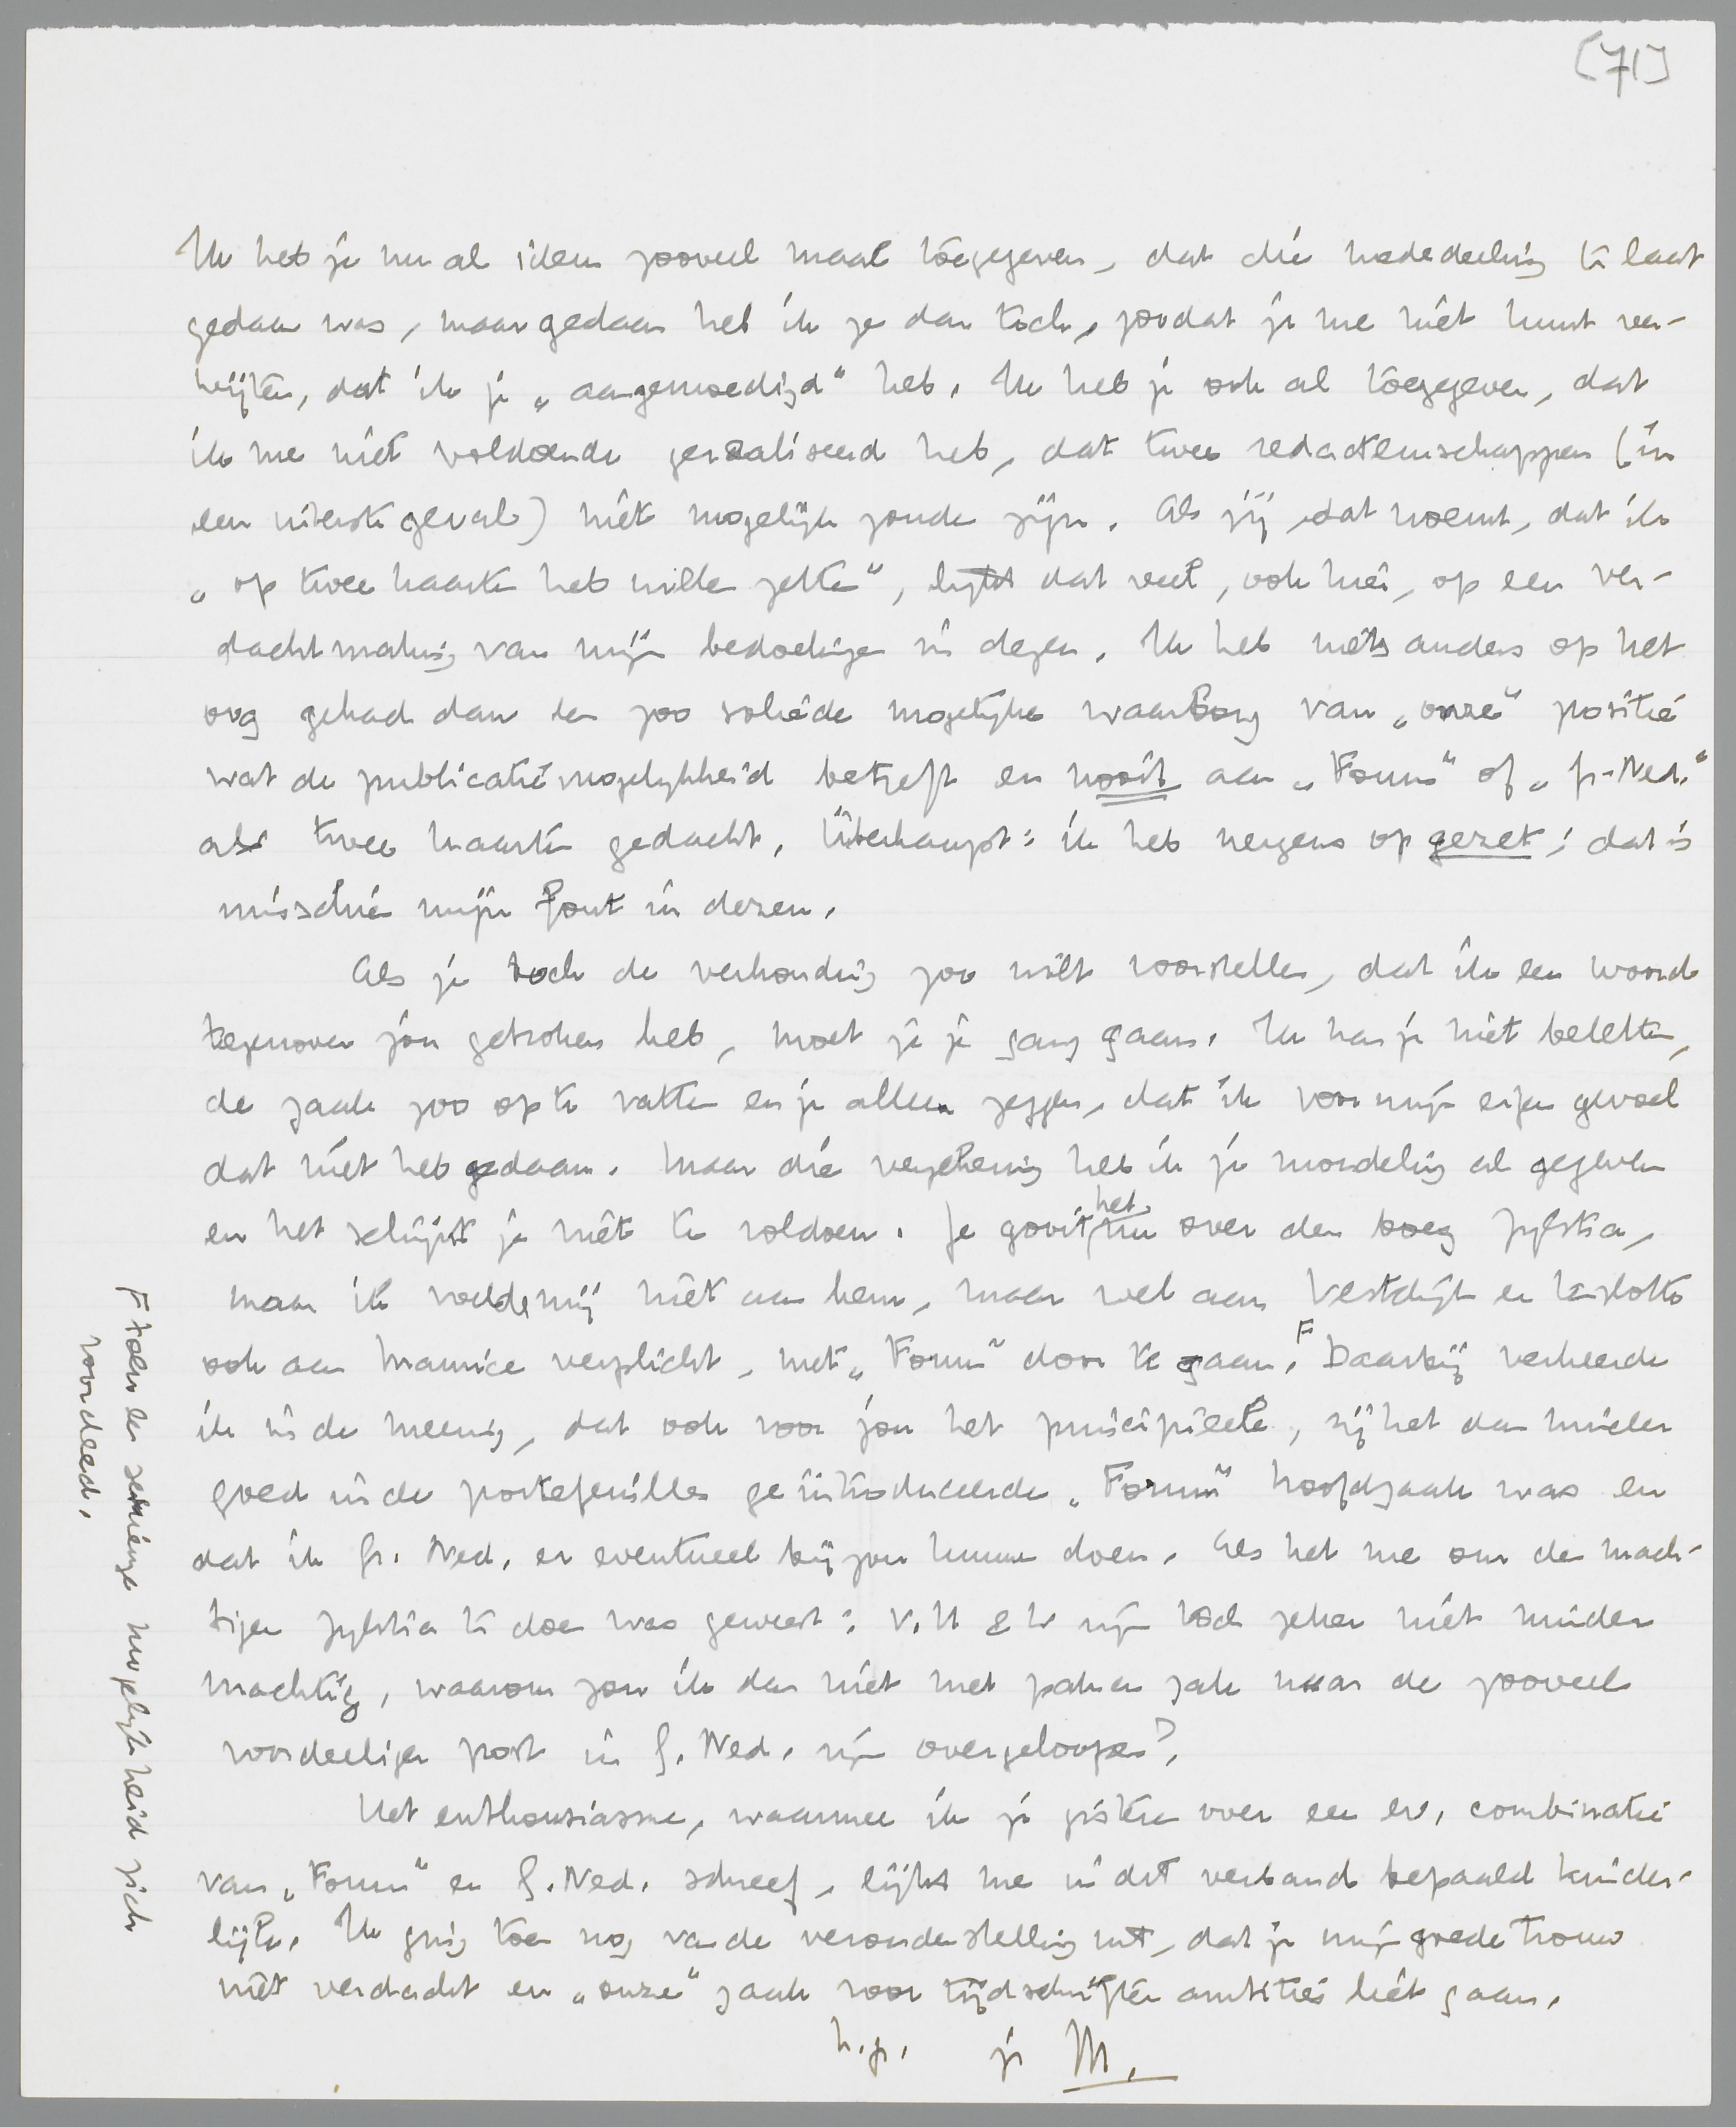 [71]
Ik heb je nu al idem zooveel maal toegegeven, dat die mededeeling te laat
gedaan was, maar gedaan heb ik ze dan toch, zoodat je me niet kunt ver-
wijten, dat ik je „aangemoedigd" heb. Ik heb je ook al toegegeven, dat
ik me niet voldoende gerealiseerd heb, dat twee redacteurschappen (in
een uiterste geval) niet mogelijk zouden zijn. Als jij dat noemt, dat ik
„op twee kaarten heb willen zetten", lijkt dat veel, ook hier, op een ver-
dachtmaking van mijn bedoelingen in dezen. Ik heb niets anders op het
oog gehad dan een zoo solied mogelijke waarborg van „onze" positie
wat de publicatiemogelijkheid betreft en nooit aan „Forum" of „Gr. Ned."
als twee kaarten gedacht. Überhaupt: ik heb nergens op gezet; dat is
misschien mijn fout in dezen.
Als je toch de verhouding zoo wilt voorstellen, dat ik een woord
tegenover jou gebroken heb, moet je je gang gaan. Ik kan je niet beletten,
de zaak zoo op te vatten en je alleen zeggen, dat ik voor mijn eigen gevoel
dat niet heb gedaan. Maar die verzekering heb ik je mondeling al gegeven
en het schijnt je niet te voldoen. Je gooit het nu over den boeg Zijlstra,
maar ik voelde mij niet aan hem, maar wel aan Vestdijk en tenslotte
ook aan Maurice verplicht, met „Forum" door te gaan, F Daarbij verkeerde
ik in de meening, dat ook voor jou het principieele, zij het dan minder
goed in de portefeuilles geïntroduceerde „Forum" hoofdzaak was en
dat ik Gr. Ned. er eventueel bij zou kunnen doen. Als het me om den mach-
tigen Zijlstra te doen was geweest: v. H & W zijn toch zeker niet minder
machtig, waarom zou ik dan niet met pak en zak naar de zooveel
voordeeliger post in G. Ned. zijn overgeloopen?
Het enthousiasme, waarmee ik je gisteren over een ev. combinatie
van „Forum" en G. Ned. schreef, lijkt me in dit verband bepaald kinder-
lijk. Ik ging toen nog van de veronderstelling uit, dat je mijn goede trouw
niet verdacht en „onze" zaak voor tijdschriften ambities liet gaan.
h. gr. je M.
F toen er eenige mogelijkheid zich
voordeed.